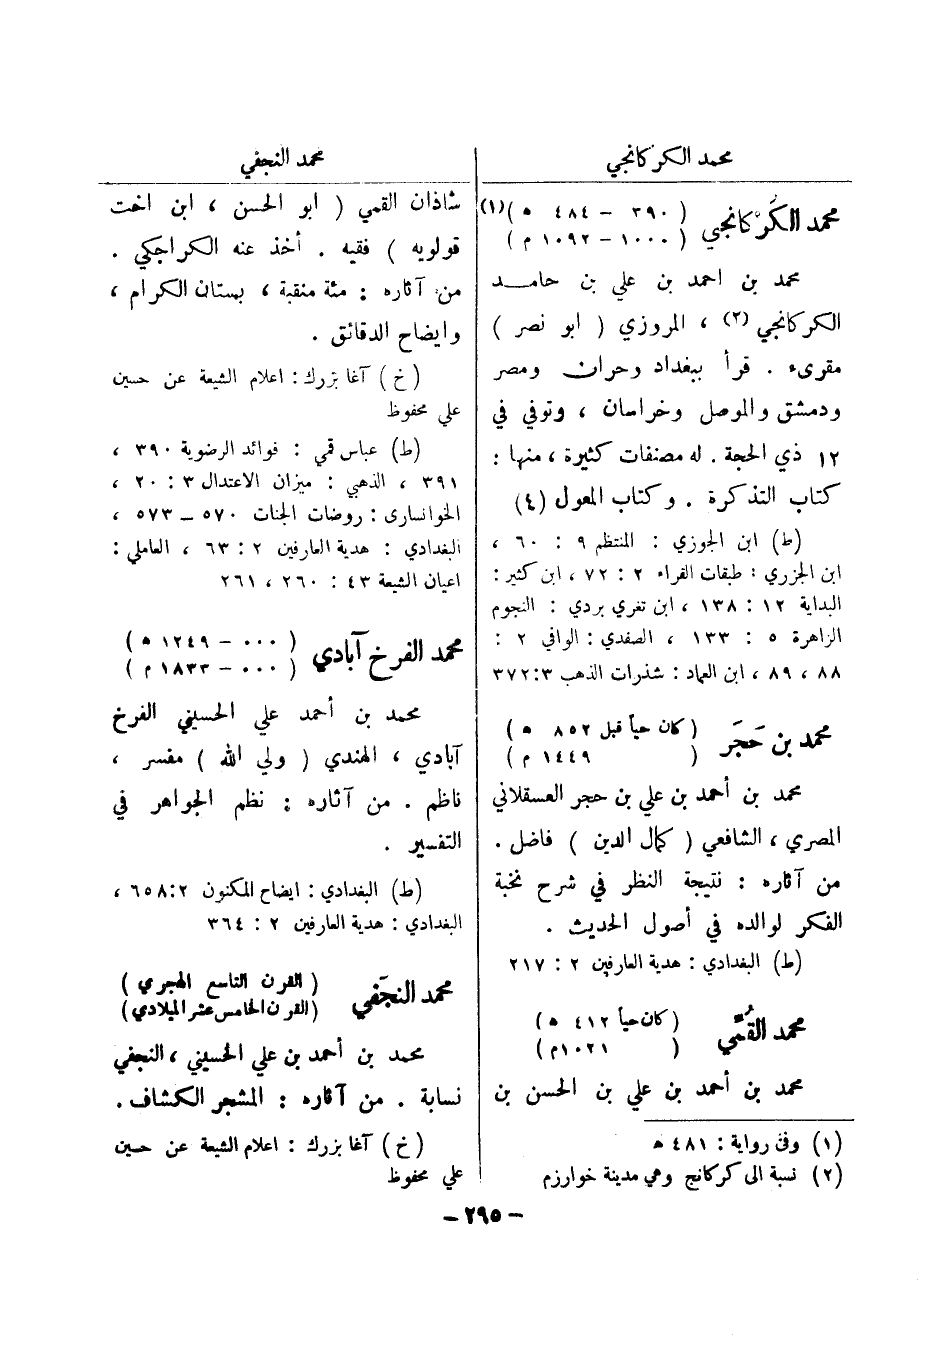 محمد الكركانجي
محمد الكَرْكانجي ( ٣٩٠ – ٤٨٤ ه )(١)
( ١٠٠٠ – ١٠٩٢ م )
محمد بن احمد بن علي بن حامـــد
الكركانجي (٢) ، المروزي ( ابو نصر )
مقرىء . قرأ ببغداد وحران ومصر
ودمشق والموصل وخراسان ، وتوفي في
١٢ ذي الحجة . له مصنفات كثيرة ، منها :
كتاب التذكرة . وكتاب المعول (٤)
(ط) ابن الجوزي : المنتظم ٩ : ٦٠ ،
ابن الجزري : طبقات القراء ٢ : ٧٢ ، ابن كثير :
البداية ١٢ : ١٣٨ ، ابن تغري بردي : النجوم
الزاهرة ٥ : ١٣٣ ، الصفدي : الوافي ٢ :
٨٨ ، ٨٩ ، ابن العماد : شذرات الذهب ٣٧٢:٣
محمد بن حَجَر ( كان حياً قبل ٨٥٢ ه )
( ١٤٤٩ م )
محمد بن أحمد بن علي بن حجر العسقلاني
المصري ، الشافعي ( كمال الدين ) فاضل .
من آثاره : نتيجة النظر في شرح نخبة
الفكر لوالده في أصول الحديث .
(ط) البغدادي : هدية العارفين ٢ : ٢١٧
محمد القُمّي ( كان حياً ٤١٢ ه )
( ١٠٢١م )
محمد بن أحمد بن علي بن الحسن بن
(١) وفى رواية : ٤٨١ ه
(٢) نسبة الى كركانج وهي مدينة خوارزم
محمد النجفي
شاذان القمي ( ابو الحسن ، ابن اخت
قولويه ) فقيه . أخذ عنه الكراجكي .
من آثاره : مئة منقبة ، بستان الكرام ،
وايضاح الدقائق .
(خ) آغا بزرك : اعلام الشيعة عن حسين
علي محفوظ
(ط) عباس قمي : فوائد الرضوية ٣٩٠ ،
٣٩١ ، الذهبي : ميزان الاعتدال ٣ : ٢٠ ،
الخوانسارى : روضات الجنات ٥٧٠ – ٥٧٣ ،
البغدادي : هدية العارفين ٢ : ٦٣ ، العاملي :
اعيان الشيعة ٤٣ : ٢٦٠ ، ٢٦١
محمد الفرخ آبادي ( ٠٠٠ – ١٢٤٩ ه )
( ٠٠٠ – ١٨٣٣ م )
محمد بن أحمد علي الحسيني الفرخ
آبادي ، الهندي ( ولي الله ) مفسر ،
ناظم . من آثاره : نظم الجواهر في
التفسير .
(ط) البغدادي : ايضاح المكنون ٦٥٨:٢ ،
البغدادي : هدية العارفين ٢ : ٣٦٤
محمد النجَفي ( القرن التاسع الهجري )
(القرن الخامس عشر الميلادي)
محمد بن أحمد بن علي الحسيني ، النجفي
نسابة . من آثاره : المشجر الكشاف .
(خ) آغا بزرك : اعلام الشيعة عن حسين
علي محفوظ
– ٢٩٥ –